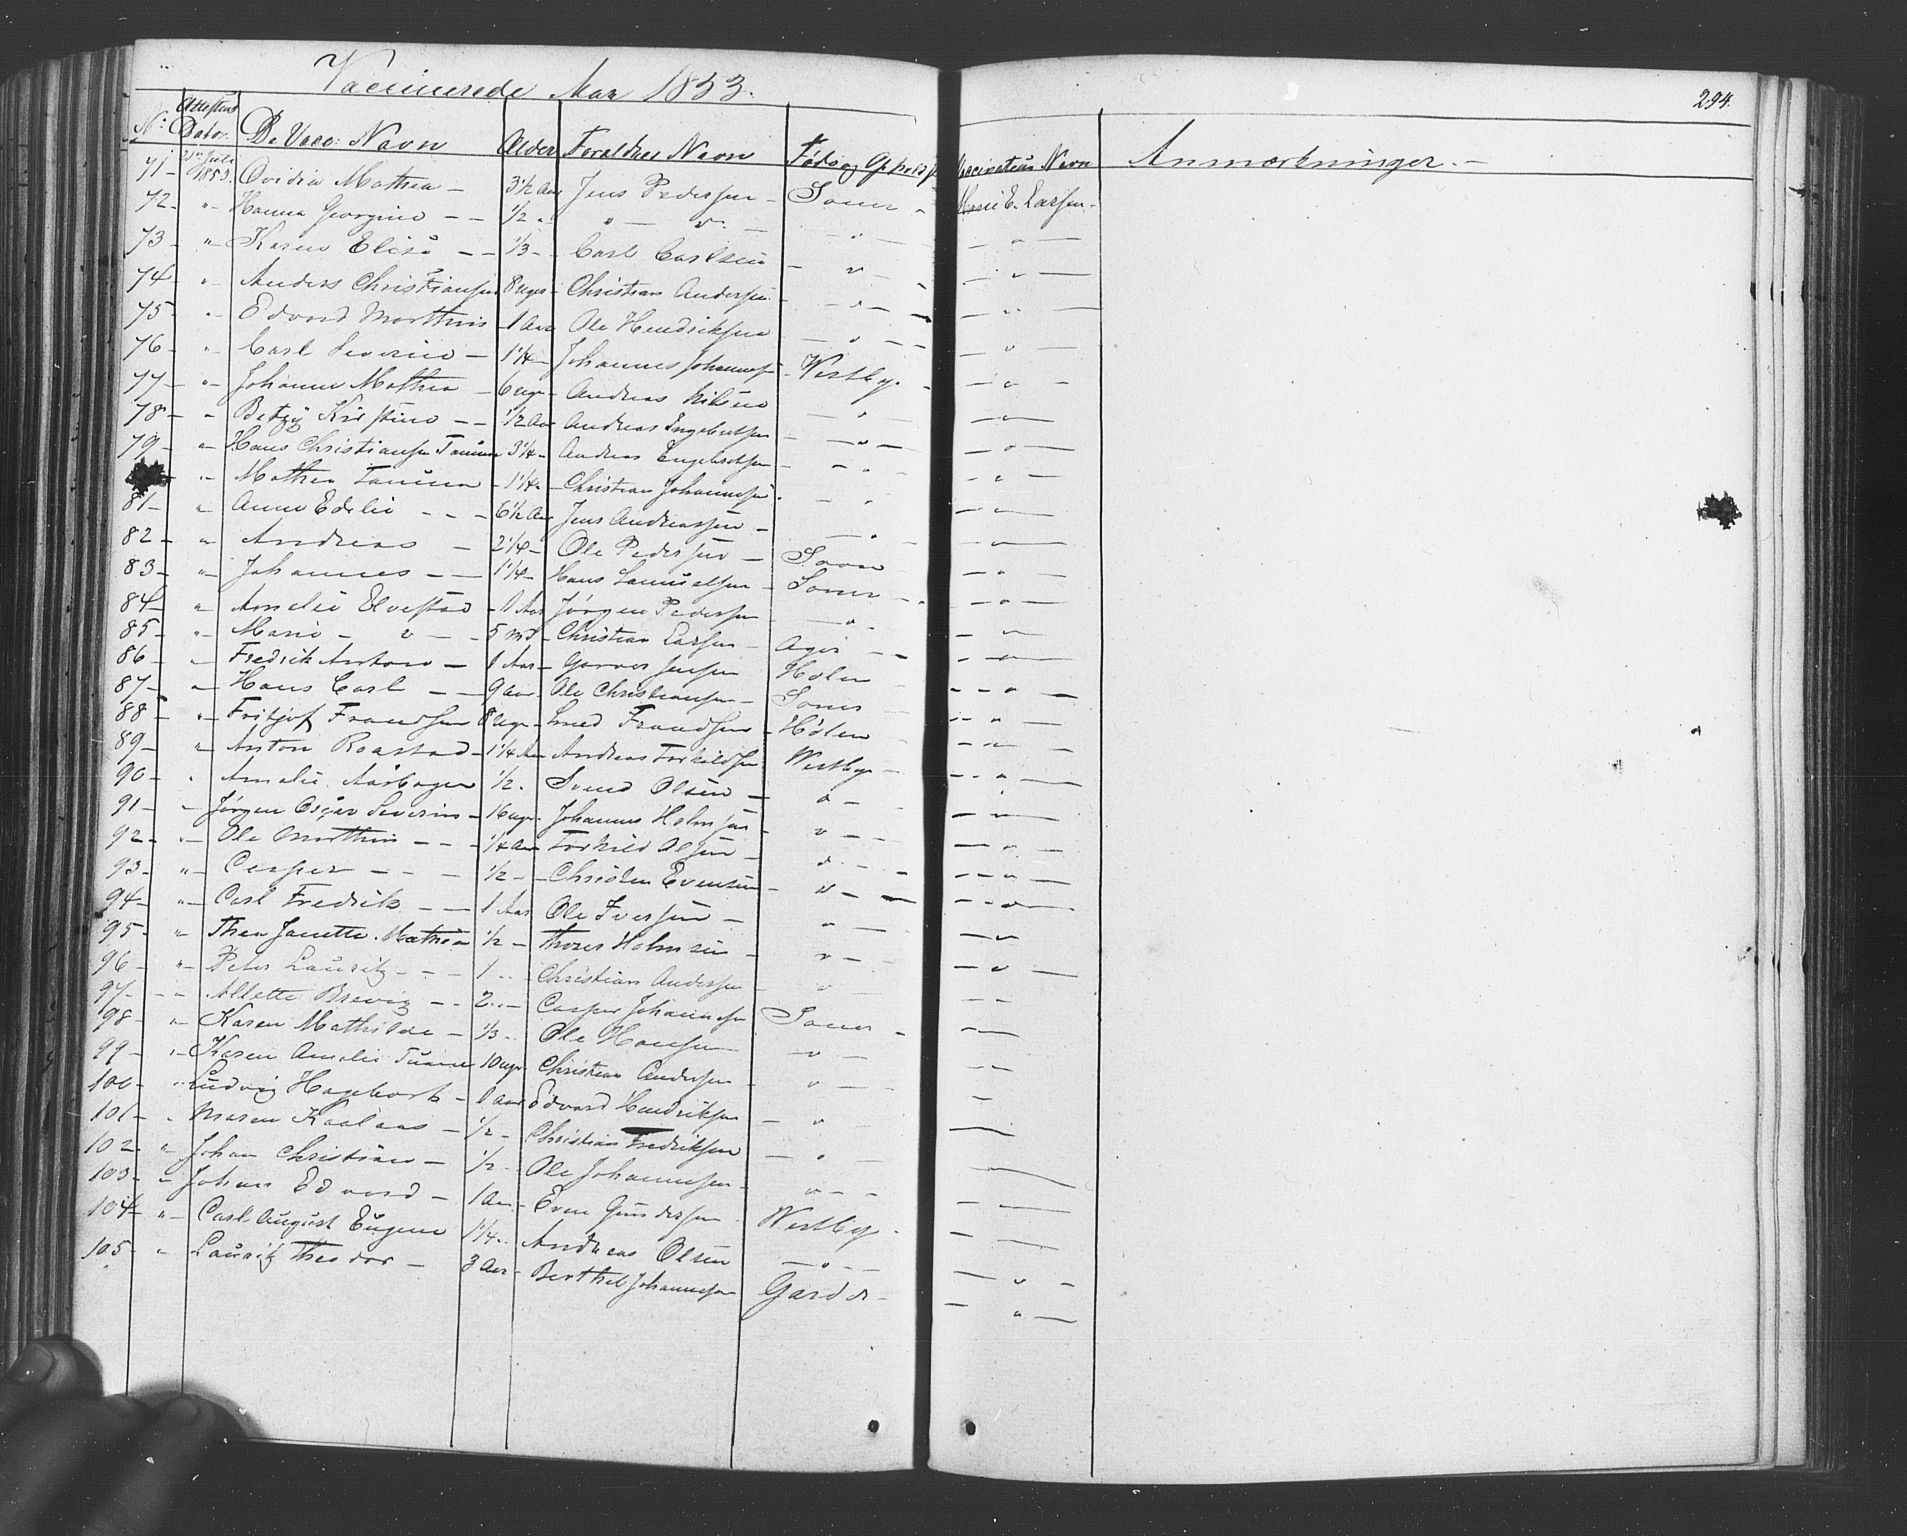 Vaccinerede Aar 1853.
294.
No: Attestens Dato. De Vacc: Navn Alder Foreldres Navn Føde og Vaccinateurs Navn Anmærkninger. —
71 – Juli 1853. Ovidia Mathea – 3½ Aar Jens Pedersen – Soner „ Marie E. Larsen.
72 – „ Hanna Georgine – – ½ „ „ — „ — „
73 – „ Karen Elise – – 1/3 – Carl Carlsen – „ – „
74 – „ Anders Christiansen 8 uger – Christian Andersen. – „ – „
75 – „ Edvard Marthin – 1 Aar Ole Hendriksen – „ – „
76 – „ Carl Severin – 1¼ – Johannes Johannesen – Vestby – „
77 – „ Johanne Mathea – 6 uger – Andreas Nilsen – „ – „
78 – „ Betzy Kirstine – – ½ Aar Andreas Engebretsen – „ – „
79 – „ Hans Christiansen 3¼ – Andreas Engebretsen – „ – „
„ Mathea – 1¼ – Christian Johannesen – „ – „
81 – „ Anne Edelie – – – 6½ Aar Jens Andreassen – „ – „
82 – „ Andreas – 2¼ – Ole Pedersen – „
83 – „ Johannes – – 1¼ – Hans Samuelsen – Soner – „
84 – „ Amelie Elvestad – 1 Aar Jørgen Pedersen – „ – „
85 – „ Marie – „ – 5 md – Christian Larsen – – „
86 – „ Fredrik Anton – 1 Aar – Jensen Holen – „
87 – „ Hans Carl – – 9 Aar – Ole Christiansen – Soner – „
88 – „ Fritjof Frandsen 8 uger – Frandsen – Hølen – „
89 – „ Anton Roastad – 1¼ Aar Andreas Torkildsen Vestby – „
90 – „ Amelie ½ – Svend Olsen – „ – „
91 – „ Jørgen Oscar Severin – 16 uger – Johannes Holmsen – „ – „
92 – „ Ole Marthin – – – ¼ Aar – Torkild Olsen – „ – „
93 – „ Casper – – – ½ – – Christen Evensen – „ – „
94 – „ Carl Fredrik – – 1 Aar Ole Iversen – „ – „
95 – „ Thea Janette Mathea ½ – Thorer Holmsen – „ – „
96 – „ Peter Lauritz – – – 1 „ – Christian Andersen – „ – „
97 – „ Allette Brevig – – 2 „ – Casper Johannesen Soner – –
98 – „ Karen Mathilde – 1/3 – Ole Hansen – „ –
99 – „ Karen Amelie 10 uger Christian Andersen – „ – –
100 – „ Ludvig – 1 Aar Edvard Hendriksen – „ –
101 – „ Maren – ½ – Christian Fredriksen – „ –
102 – „ Johan Christian – ½ – Ole Johannesen – „ – –
103 – „ Johan Edvard – 1 Aar – Even Gundersen Vestby –
104 – „ Carl August Eugene 1¼ – Andreas Olsen – „ – – „ –
105 – „ Lauritz Theodor – 3 Aar – Berthel Johannesen Garder – – „ –